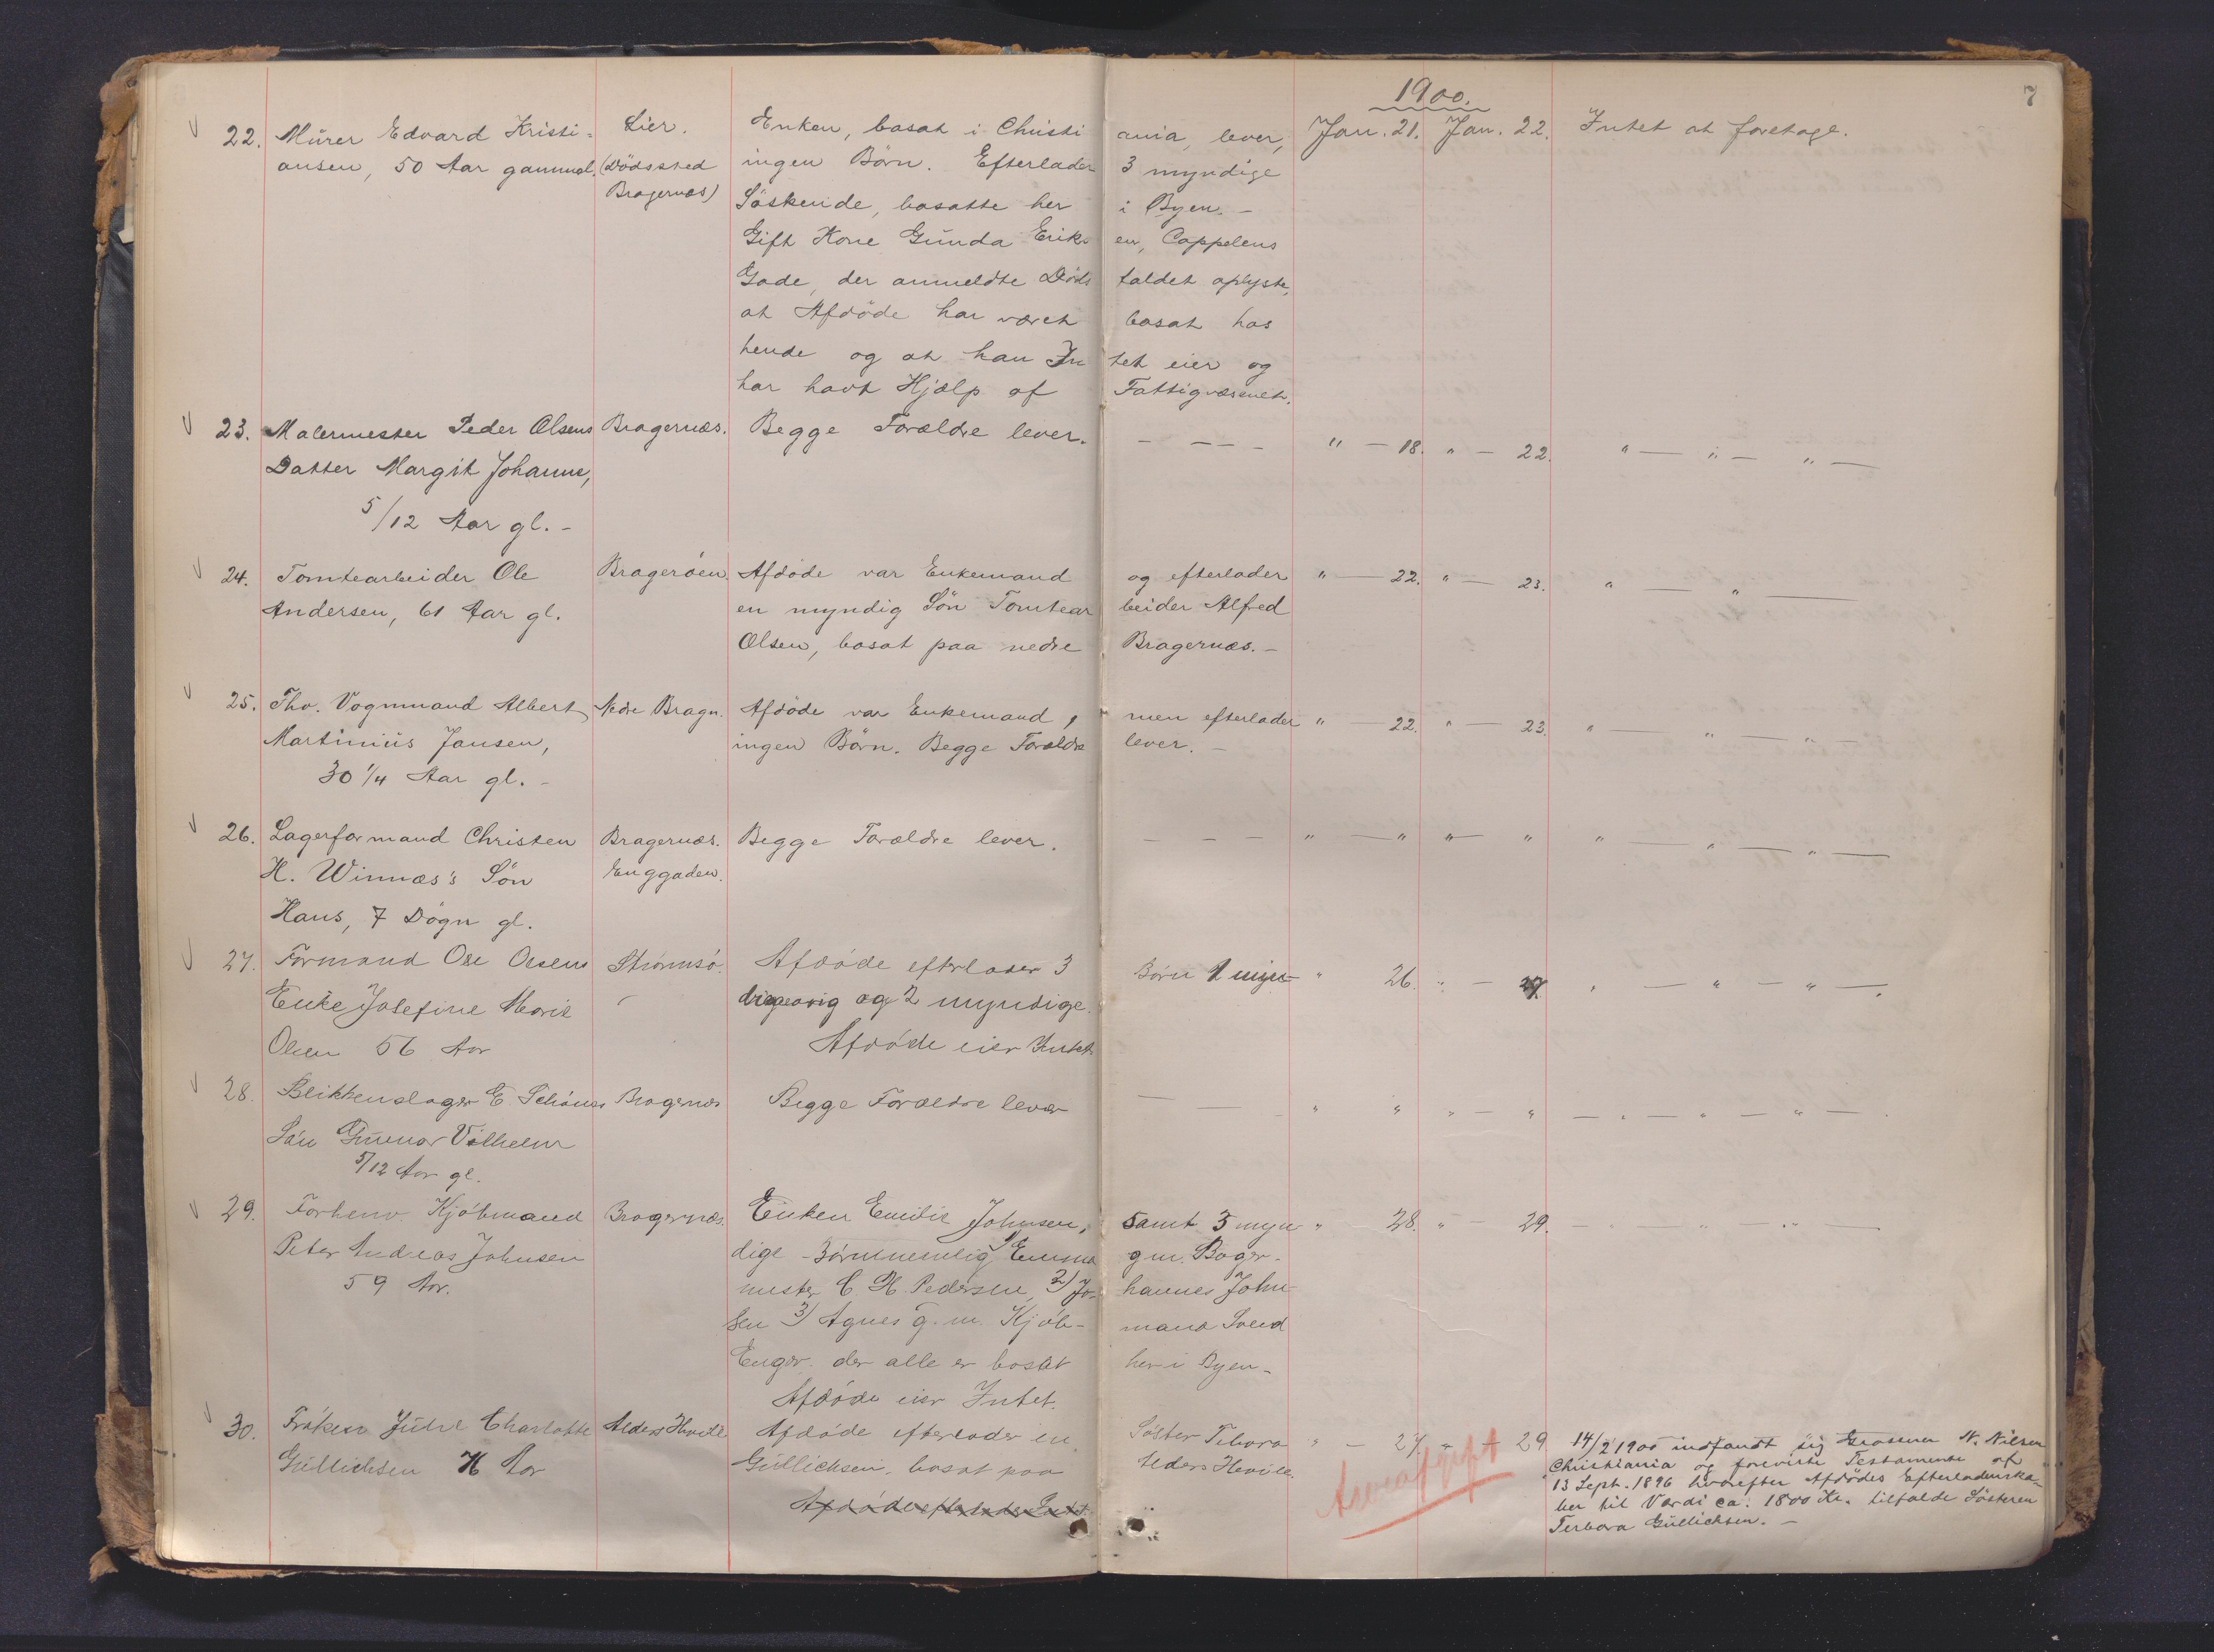 1900.
7
22. Murer Edvard Kristi- Lier. Enken, bosat i Christi ania, lever, Jan. 21. Jan. 22. Intet at foretage.
ansen, 50 Aar gammel. (Dödssted ingen Börn. Efterlader 3 myndige
Bragernæs) Söskende, bosatte her i Byen. -
Gift Kone Gunda Eriks en, Cappelens
Gade, der anmeldte Döds faldet oplyste,
at Afdöde har været bosat hos
hende og at han In tet eier og
har havt Hjælp af Fattigvæsenet.
23. Malermester Peder Olsens Bragernæs. Begge Forældre lever. - - - " - 18. " - 22. " - " - " -
Datter Margit Johanne,
5/12 Aar gl. -
24. Tomtearbeider Ole Bragerøen. Afdöde var Enkemand og efterlader " - 22. " - 23. " - " -
Andersen, 61 Aar gl. en myndig Sön Tomtear beider Alfred
Olsen, bosat paa nedre Bragernæs. -
25. Fhv. Vognmand Albert Nedre Bragn. Afdöde var Enkemand, men efterlader " - 22. " - 23. " - " - " -
Martinius Jansen, ingen Börn. Begge Forældre lever. -
30 1/4 Aar gl. -
26. Lagerformand Christen Bragernæs. Begge Forældre lever. - - - " - " " - " " - " - " -
H. Winnæs's Sön Enggaden.
Hans, 7 Dögn gl.
27. Formand Ole Olsens Strømsö. Afdöde efterlader 3 Börn 1 myn- " 26. " - 27. " - " - " -
Enke Josefine Marie og 2 myndige.
Olsen 56 Aar Afdöde eier Intet
28. Blikkenslager E. Bragernæs Begge Forældre lever - - - " " " - " - " - " - " -
Sön Gunnar Vilhelm
5/12 Aar gl.
29. Forhenv. Kjöbmand Bragernæs. Enken Emilie Johnsen, samt 3 myn " 28. " - 29. - " - " -
Peter Andreas Johnsen dige Börn nemlig 1) Emma g. m. Bager-
59 Aar. mester C. H. Pedersen, 2) Jo- hannes John-
sen 3) Agnes g. m. Kjöb- mand Svend
Enger. der alle er bosat her i Byen-
Afdöde eier Intet.
30. Fröken Julie Charlotte Alders Hvile Afdöde efterlader en Söster Tebora " - 27. " 29 14/2 1900 indfandt sig Grosserer N. Nilsen
Gullichsen 76 Aar Gullichsen, bosat paa Alders Hvile. Christiania og foreviste Testamente af
Afdöde efterlader Intet 13 Sept. 1896 hvorefter Afdödes Efterladenska-
Arveafgift ber til Værdi ca. 1800 Kr. tilfalde Sösteren
Terbora Gullichsen. -